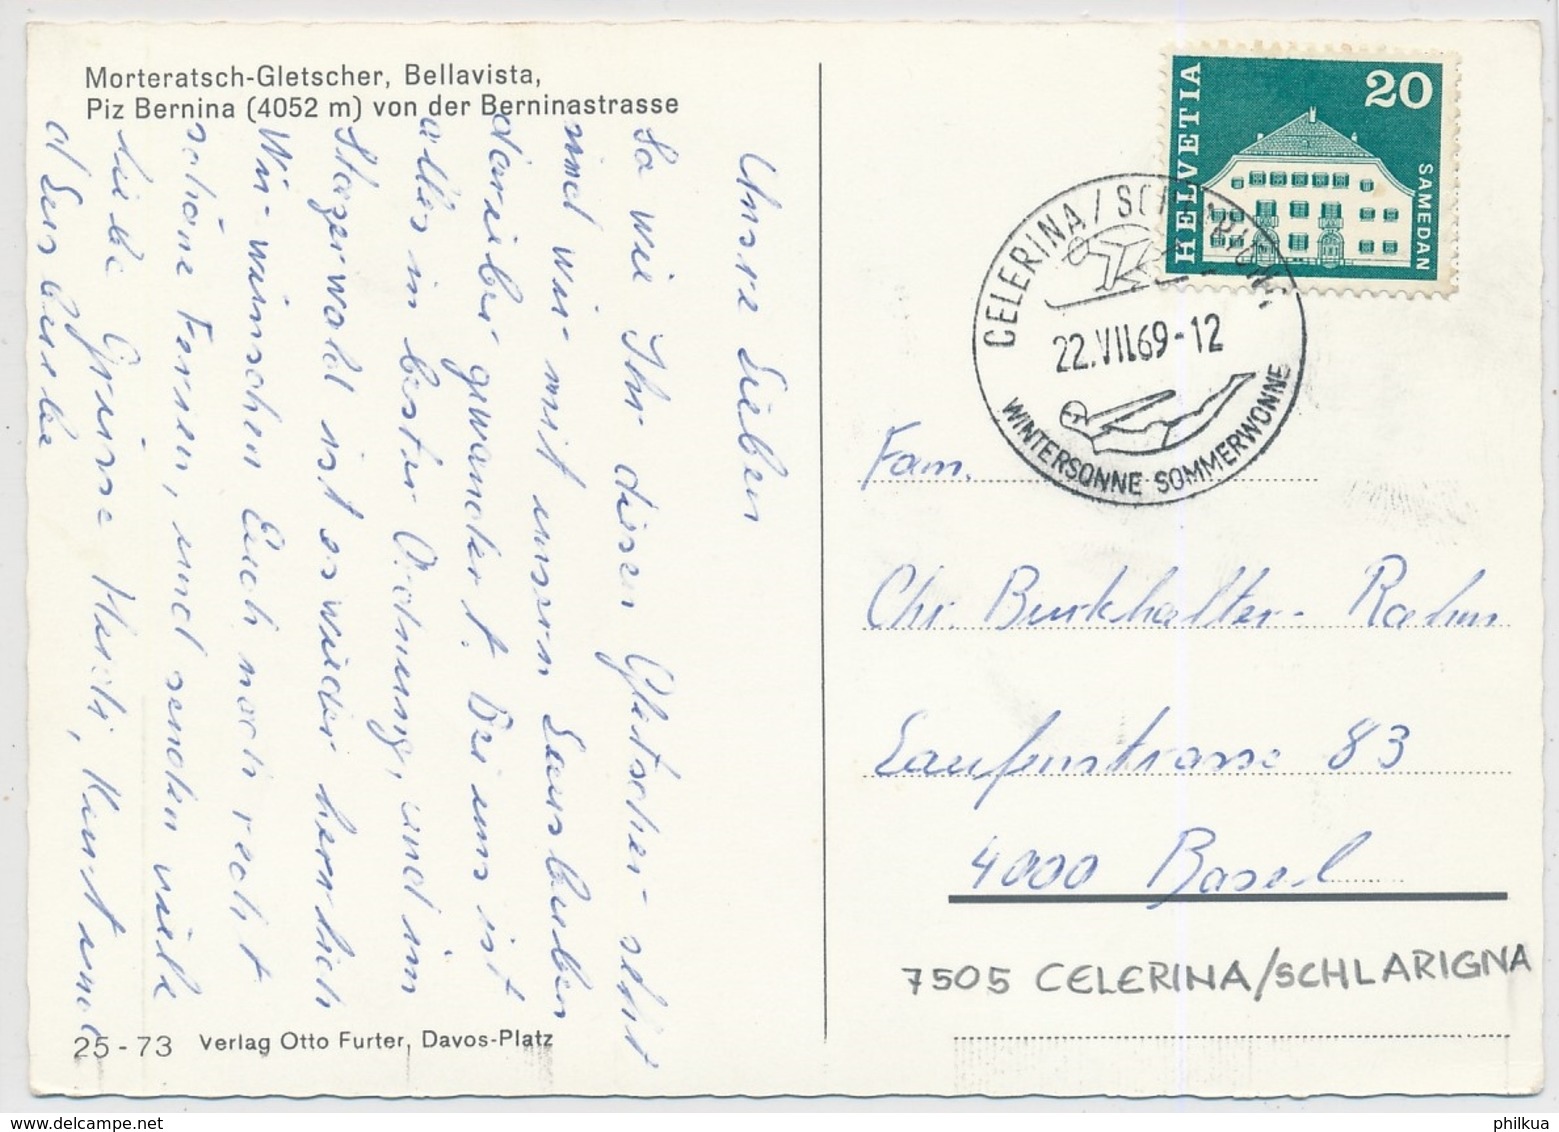 Morteratsch-Gletscher, Bellavista,
Piz Bernina (4052 m) von der Berninastrasse
Unsre Lieben
So wie Ihr diesen Gletscher seht
sind wir mit unsern Lausbuben
darüber gewandert. Bei uns ist
alles in bester Ordnung, und im
Stazerwald ist es wieder herrlich
Wir wünschen Euch noch recht
schöne Ferien, und senden viele
liebe Grüsse Kurt und
d'Lusbuebe
25-73 Verlag Otto Furter, Davos-Platz
HELVETIA
20
SAMEDAN
CELERINA/SCHLARIGNA
22.VII.69-12
WINTERSONNE SOMMERWONNE
Fam.
Chr. Burkhalter-Rahm
Laufenstrasse 83
4000 Basel
7505 CELERINA/SCHLARIGNA
philkua